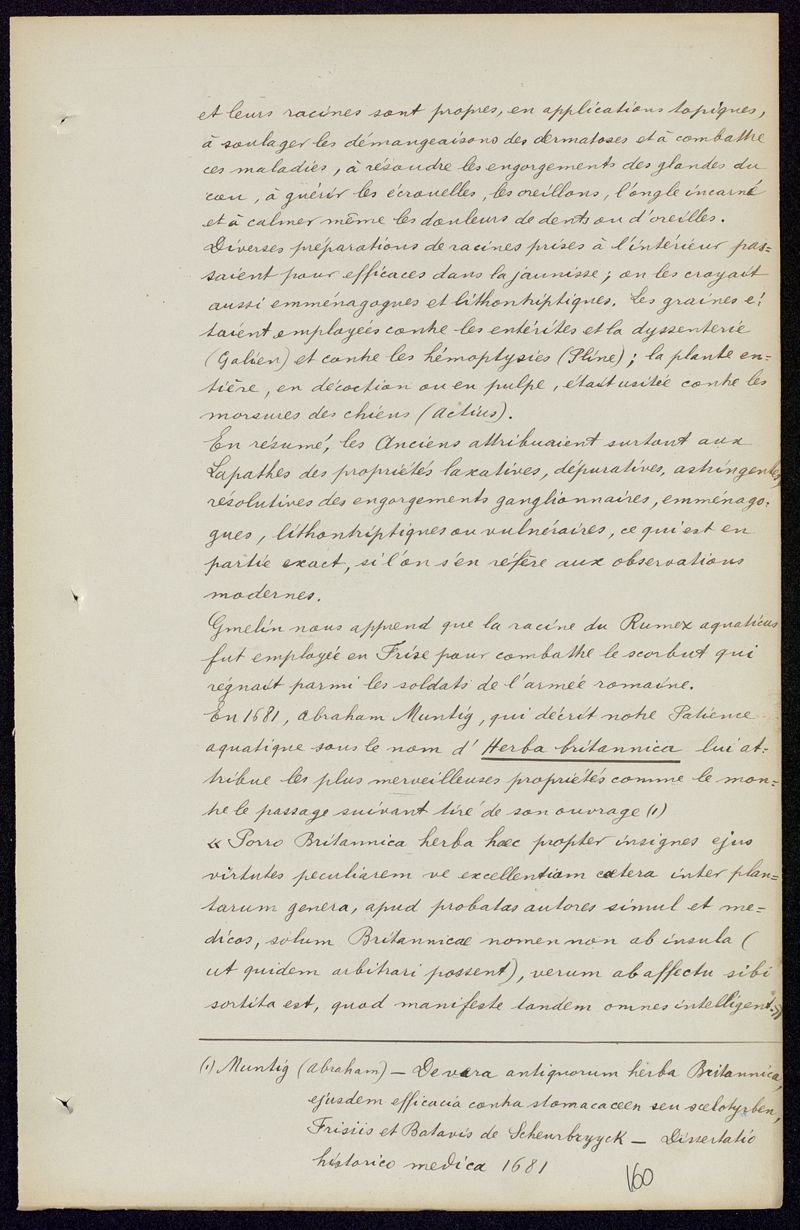 et leurs racines sont propres, en applications topiques,
à soulager les démangeaisons des dermatoses et à combattre
ces maladies, à résoudre les engorgements des glandes du
cou, à guérir les écrouelles, les oreillons, l'ongle incarné
et à calmer même les douleurs de dents ou d'oreilles.
Diverses préparations de racines prises à l'intérieur pas=
saient pour efficaces dans la jaunisse; on les croyait
aussi emménagogues et lithontriptiques. Les graines é:
taient employées contre les entérites et la dyssenterie
(Galien) et contre les hémoptysies (Pline); la plante en=
tière, en décoction ou en pulpe, était usitée contre les
morsures des chiens (Actius).
En résumé, les Anciens attribuaient surtout aux
Lapathes des propriétés laxatives, dépuratives, astringentes,
résolutives des engorgements ganglionnaires, emménago:
gues, lithontriptiques ou vulnéraires, ce qui est en
partie exact, si l'on s'en réfère aux observations
modernes.
Gmelin nous apprend que la racine du Rumex aquaticus
fut employée en Frise pour combattre le scorbut qui
régnait parmi les soldats de l'armée romaine.
En 1681, Abraham Muntig, qui décrit notre Patience
aquatique sous le nom d' Herba britannica lui at:
tribue les plus merveilleuses propriétés comme le mon=
tre le passage suivant tiré de son ouvrage (1)
« Porro Britannica herba hæc propter insignes ejus
virtutes peculiarem ve excellentiam cætera inter plan=
tarum genera, apud probatas autores simul et me=
dicos, solum Britannicae nomen non ab insula (
ut quidem arbitrari possent), verum ab affectu sibi
sortita est, quod manifeste tandem omnes intelligent.»
(1) Muntig (Abraham) — De vera antiquorum herba Britannica,
ejusdem efficacia contra stomacaceen seu scelotyrben,
Frisiis et Batavis de Scheurbryyck — Dissertatio
historico medica 1681
160